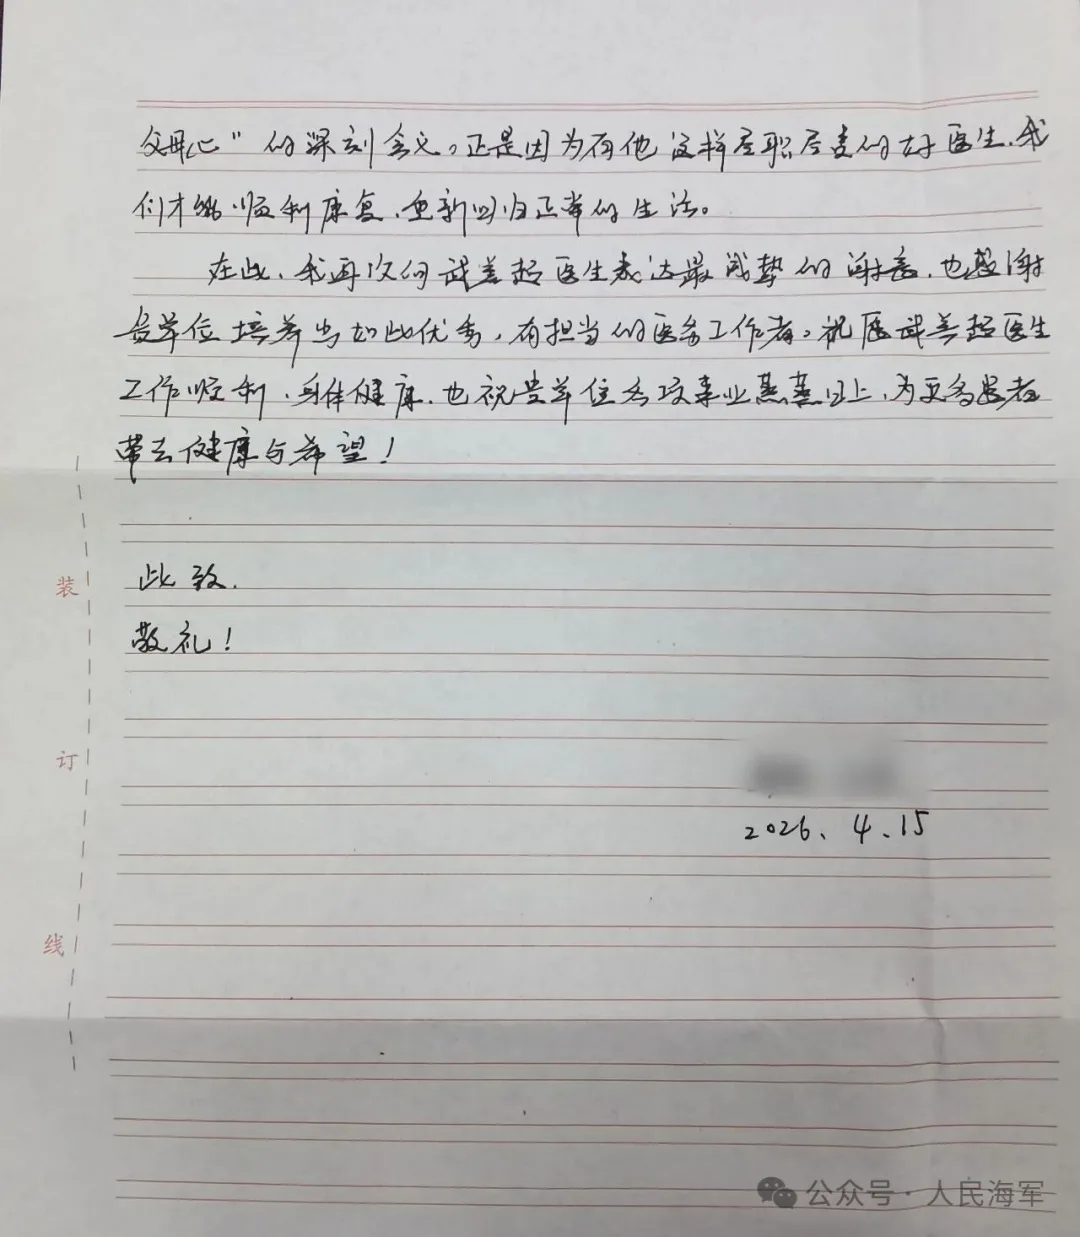 父母心”的深刻含义。正是因为有他这样尽职尽责的好医生，我
们才能顺利康复，重新回归正常的生活。
在此，我再次向武善超医生表达最诚挚的谢意，也感谢
贵单位培养出如此优秀，有担当的医务工作者。祝愿武善超医生
工作顺利，身体健康，也祝贵单位各项事业蒸蒸日上，为更多患者
带去健康与希望！
此致.
敬礼！
2026、4、15
装
订
线
公众号·人民海军